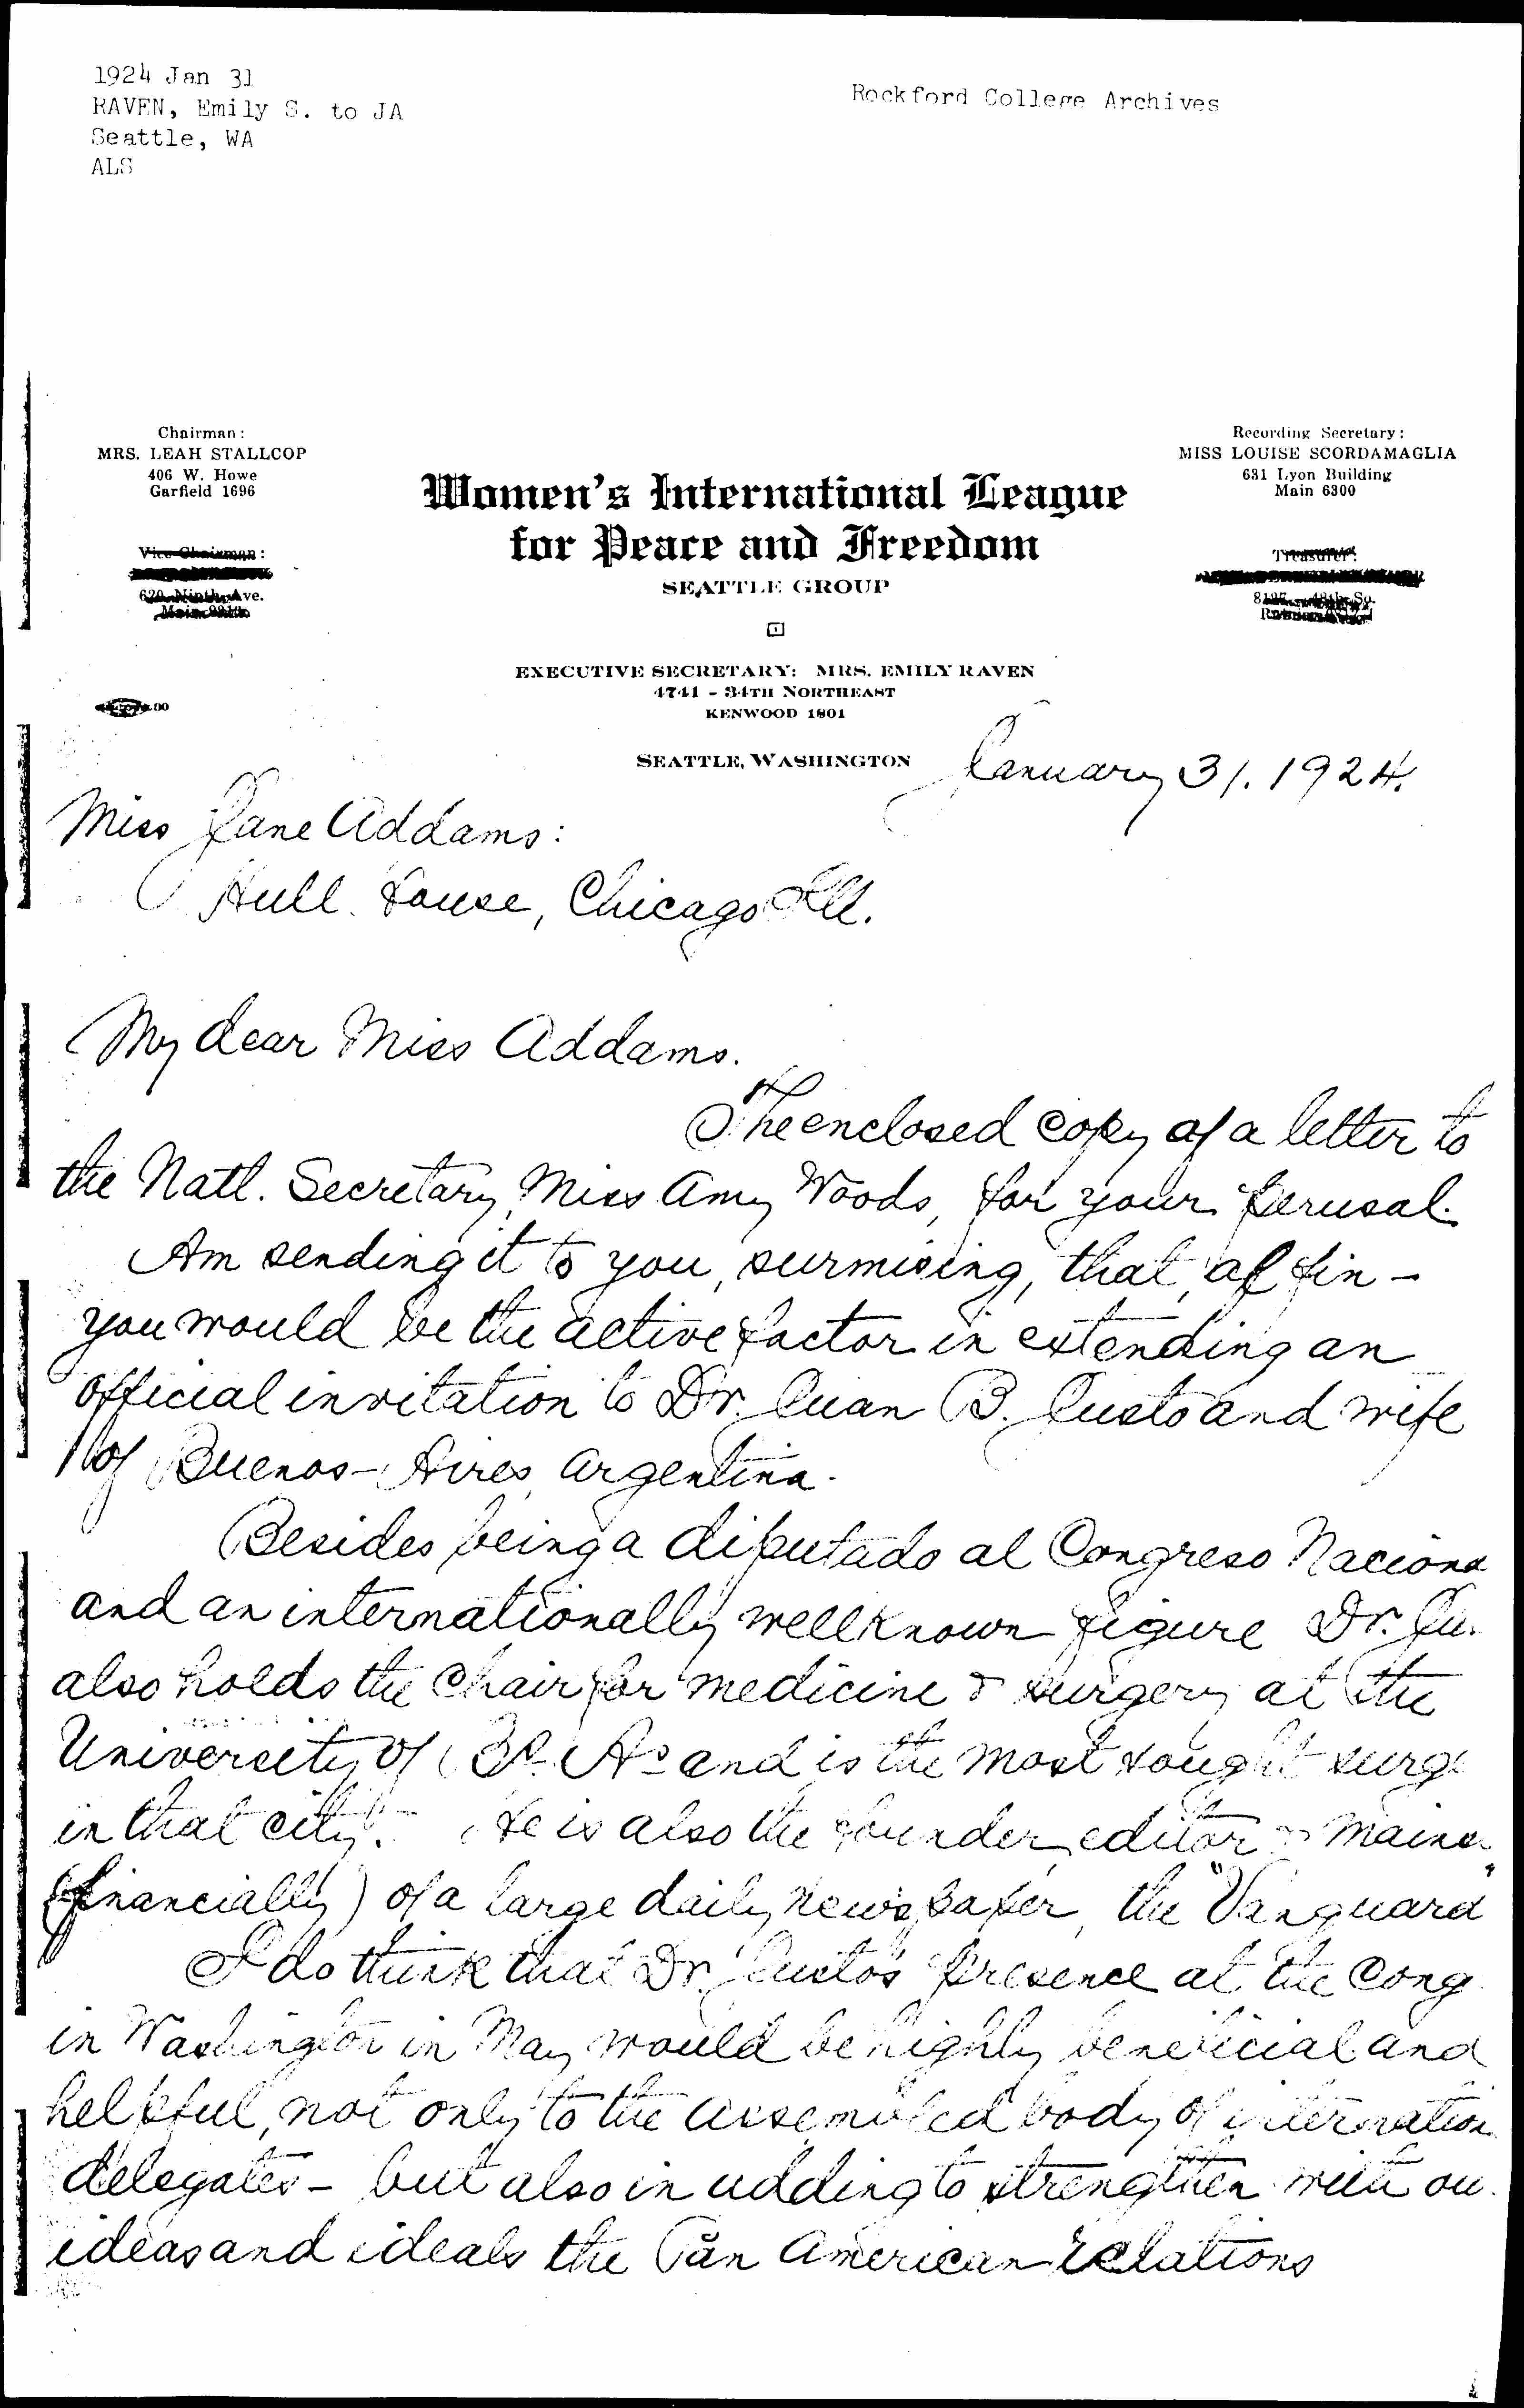 1924 Jan 31
RAVEN, Emily S. to JA
Seattle, WA
ALS
Rockford College Archives
Chairman:
MRS. LEAH STALLCOP
406 W. Howe
Garfield 1696
Recording Secretary:
MISS LOUISE SCORDAMAGLIA
631 Lyon Building
Main 6300
Women's International League
for Peace and Freedom
SEATTLE GROUP
Vice Chairman:
Ninth Ave.
Treasurer:
So.
EXECUTIVE SECRETARY: MRS. EMILY RAVEN
4741 - 34TH NORTHEAST
KENWOOD 1801
SEATTLE, WASHINGTON January 31. 1924.
Miss Jane Addams:
Hull House, Chicago Ill.
My dear Miss Addams.
The enclosed copy of a letter to
the Natl. Secretary, Miss Amy Woods, for your perusal.
Am sending it to you, surmising, that,
you would be the active factor in extending an
official invitation to Dr. Juan B. Justo and wife
of Buenos-Aires, Argentina.
Besides being a diputado al Congreso Naciona
and an internationally wellknown figure Dr. Ju.
also holds the chair for medicine & surgery at the
University of Bs. As and is the most sought surg
in that city. He is also the founder, editor & maine
(financially) of a large daily newspaper, the "Vanguard"
I do think that Dr. Justo's presence at the Cong
in Washington in May would be highly beneficial and
helpful, not only to the assembled body of internation
delegates - but also in adding to strengthen with ou
ideas and ideals the Pan American relations